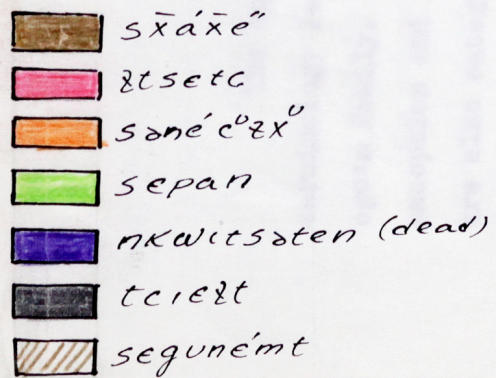 sx̄áx̄e"
ƨtsetc
sǝnécᵘƨxᵘ
sepan
nkwitsǝten (dead)
tcieƨt
segunémt